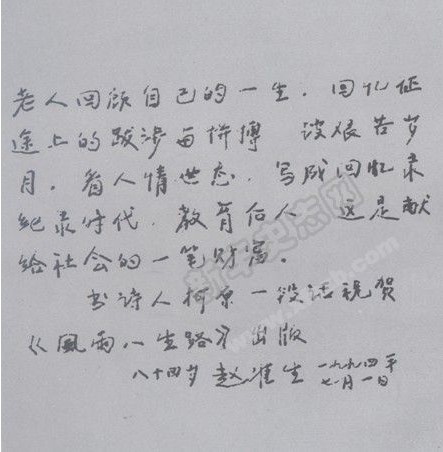 老人回顾自己的一生，回忆征
途上的跋涉与拼搏 谈艰苦岁
月，看人情世态，写成回忆录
纪录时代，教育后人 这是献
给社会的一笔财富。
书诗人柯原一段话祝贺
《風雨人生路》出版
八十四岁 赵准生 一九九四年
七月一日